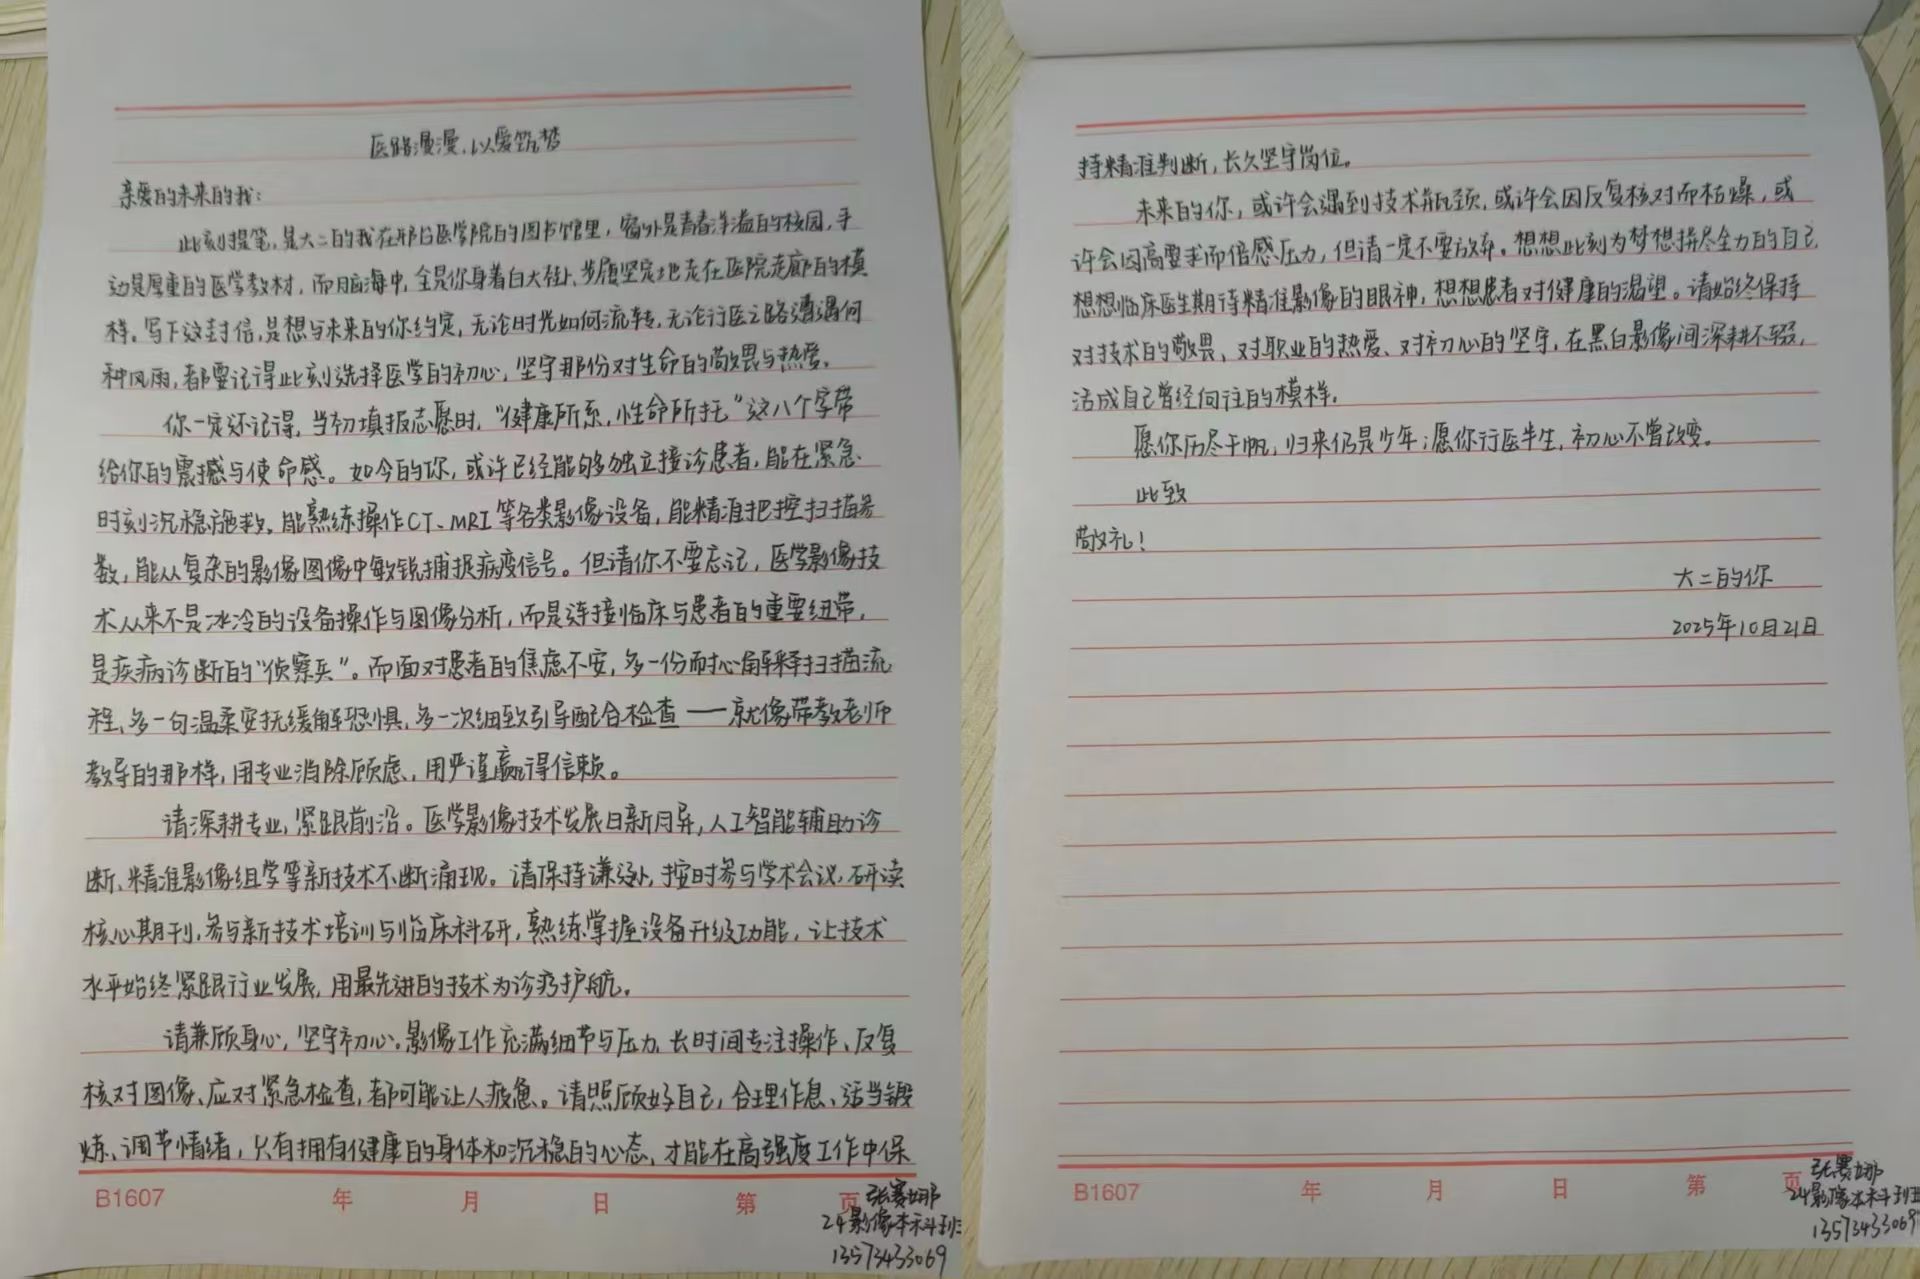 医路漫漫,以爱筑梦
亲爱的未来的我:
此刻提笔,是大二的我在邢台医学院的图书馆里,窗外是青春洋溢的校园,手
边是厚重的医学教材,而脑海中,全是你身着白大褂、步履坚定地走在医院走廊的模
样。写下这封信,是想与未来的你约定,无论时光如何流转,无论行医之路遭遇何
种风雨,都要记得此刻选择医学的初心,坚守那份对生命的敬畏与热爱。
你一定还记得,当初填报志愿时,“健康所系,性命所托”这八个字带
给你的震撼与使命感。如今的你,或许已经能够独立接诊患者,能在紧急
时刻沉稳施救,能熟练操作CT、MRI等各类影像设备,能精准把控扫描参
数,能从复杂的影像图像中敏锐捕捉病变信号。但请你不要忘记,医学影像技
术从来不是冰冷的设备操作与图像分析,而是连接临床与患者的重要纽带,
是疾病诊断的“侦察兵”。而面对患者的焦虑不安,多一份耐心解释扫描流
程、多一句温柔安抚缓解恐惧、多一次细致引导配合检查——就像带教老师
教导的那样,用专业消除顾虑、用严谨赢得信赖。
请深耕专业,紧跟前沿。医学影像技术发展日新月异,人工智能辅助诊
断、精准影像组学等新技术不断涌现。请保持谦逊,按时参与学术会议,研读
核心期刊,参与新技术培训与临床科研,熟练掌握设备升级功能,让技术
水平始终紧跟行业发展,用最先进的技术为诊疗护航。
请兼顾身心,坚守初心。影像工作充满细节与压力,长时间专注操作、反复
核对图像、应对紧急检查,都可能让人疲惫。请照顾好自己,合理作息、适当锻
炼、调节情绪,只有拥有健康的身体和沉稳的心态,才能在高强度工作中保
B1607 年 月 日 第 页
张赛娜
24影像本科班
13573433069
持精准判断,长久坚守岗位。
未来的你,或许会遇到技术瓶颈,或许会因反复核对而枯燥,或
许会因高要求而倍感压力,但请一定不要放弃。想想此刻为梦想拼尽全力的自己,
想想临床医生期待精准影像的眼神,想想患者对健康的渴望。请始终保持
对技术的敬畏、对职业的热爱、对初心的坚守,在黑白影像间深耕不辍,
活成自己曾经向往的模样。
愿你历尽千帆,归来仍是少年;愿你行医半生,初心不曾改变。
此致
敬礼!
大二的你
2025年10月21日
B1607 年 月 日 第 页
张赛娜
24影像本科班
13573433069